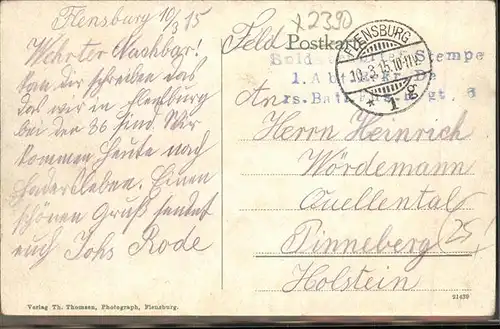 Flensburg 10/3 15
Wehrter Nachbar!
kan Dir schreiben das
das wir in Flensburg
bei den 86 sind. Wir
kommen heute nach
Hadersleben. Einen
schönen Gruß sendet
euch Johs Rode
x2390
Feldpostkarte
FLENSBURG
10.3.15.10-11V.
* 1 g
Stempe
1. Abt
rs. Batl. Regt. 6
An
Herrn Heinrich
Wördemann
Quellental
Pinneberg (25)
Holstein
Verlag Th. Thomsen, Photograph, Flensburg.
21439